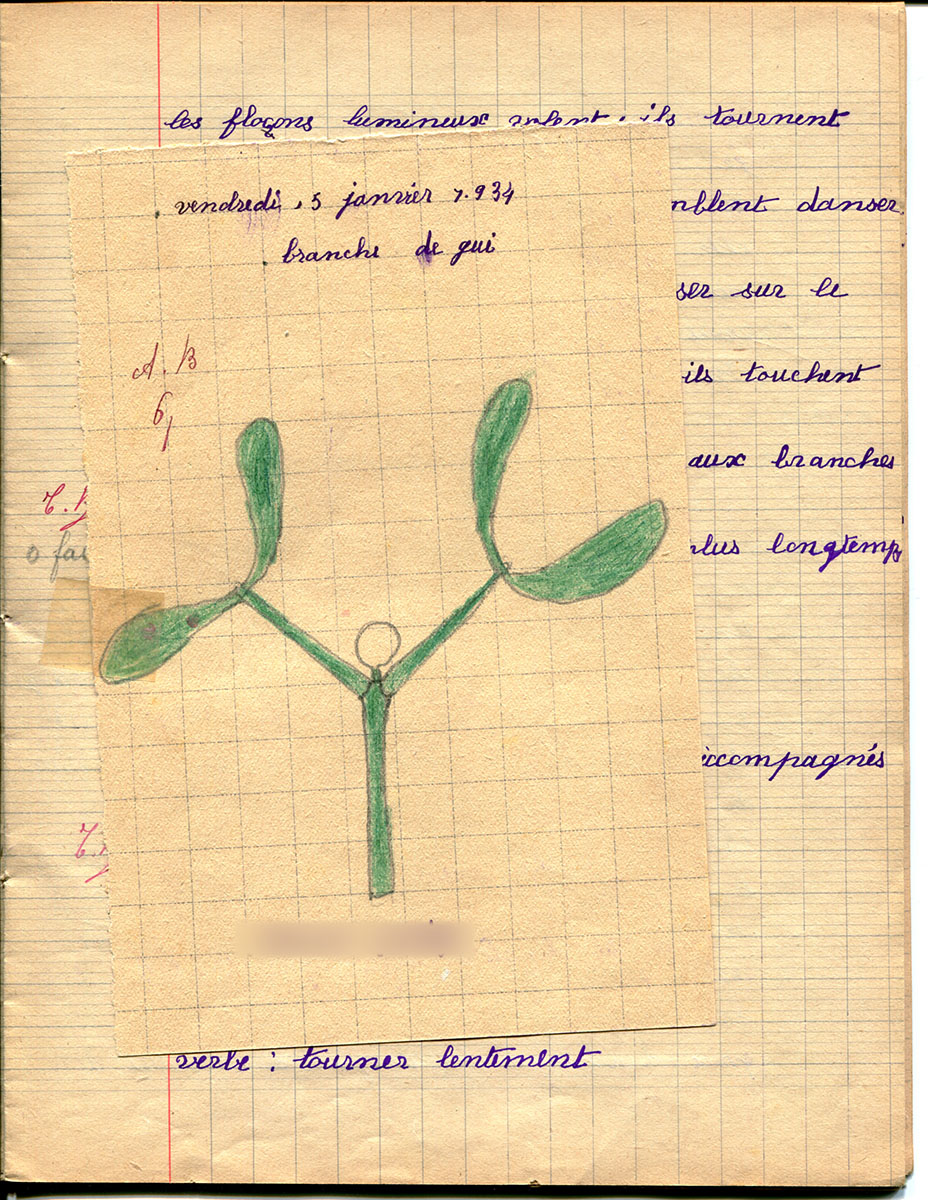 les flocons lumineux volent, ils tournent
vendredi, 5 janvier 1.934
branche de gui
A.B
6
nblent danser.
ser sur le
ils touchent
aux branches
T.B
lus longtemps
o fai
accompagnés
T.
verbe : tourner lentement